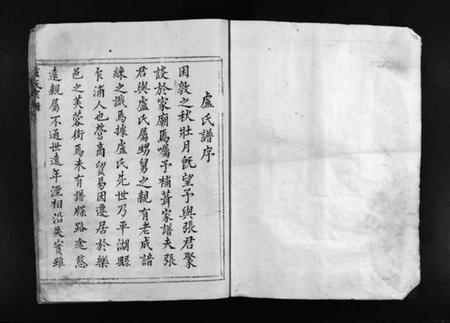 盧氏譜序
困敦之秋壯月既望予與張君聚
談於家廟焉囑予補葺家譜夫張
君與盧氏屬甥舅之親有老成諳
練之識焉據盧氏先世乃平湖縣
乍浦人也營商貿易因遷居於樂
邑之芙蓉街焉未有譜牒路途悠
遠親屬不通世遠年湮相沿失實雖